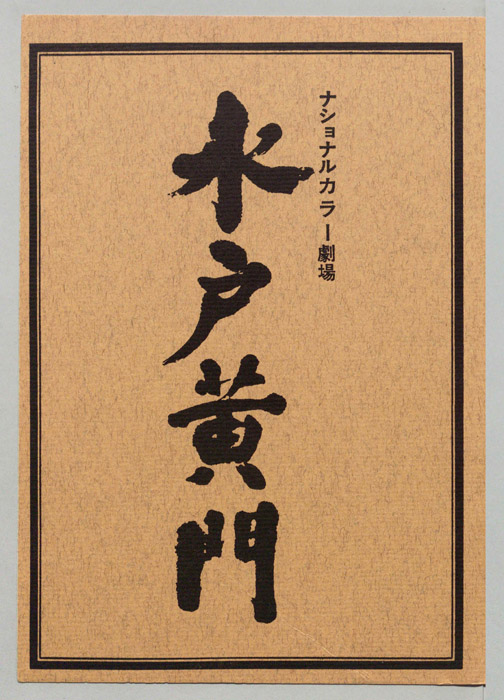 ナショナルカラー劇場
水戸黄門